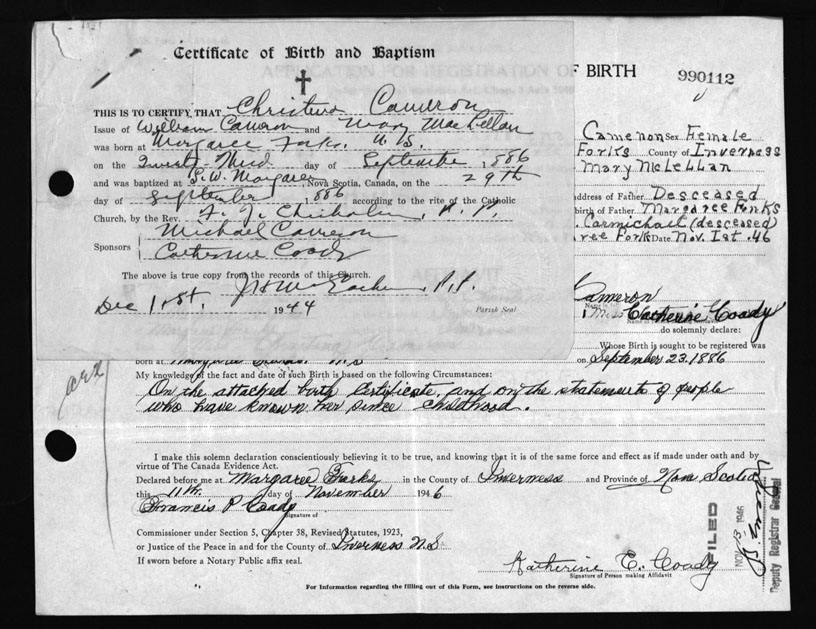 Certificate of Birth and Baptism
OF BIRTH
990112
THIS IS TO CERTIFY, THAT Christina Cameron
Issue of William Cameron and Mary MacLellan
was born at Margaree Forks. N.S.
on the Twenty-Third day of September, 1886
and was baptized at S.W. Margaree, Nova Scotia, Canada, on the 29th
day of September, 1886 according to the rite of the Catholic
Church, by the Rev. Chisholm, P.P.
Sponsors Michael Cameron
Catherine Coady
The above is true copy from the records of this Church.
P.P.
Dec 1st. 1944 Parish Seal
Cameron Sex Female
Forks County of Inverness
Mary McLellan
address of Father Desceased
birth of Father Margaree Forks
Carmichael (desceased)
ree Fork Date Nov. 1st. 46
Cameron
Miss Catherine Coady
do solemnly declare:
Whose Birth is sought to be registered was
born at on September 23. 1886
My knowledge of the fact and date of such Birth is based on the following Circumstances:
On the attached birth Certificate, and on the statements of people
who have known her since childhood.
I make this solemn declaration conscientiously believing it to be true, and knowing that it is of the same force and effect as if made under oath and by
virtue of The Canada Evidence Act.
Declared before me at Margaree Forks in the County of Inverness and Province of Nova Scotia
this 11th. day of November 1946
Francis P Coady
Signature of
Commissioner under Section 5, Chapter 38, Revised Statutes, 1923,
or Justice of the Peace in and for the County of Inverness N.S.
If sworn before a Notary Public affix seal.
Katherine E. Coady
Signature of Person making Affidavit
For Information regarding the filling out of this Form, see instructions on the reverse side.
FILED
NOV 15 1946
Deputy Registrar General